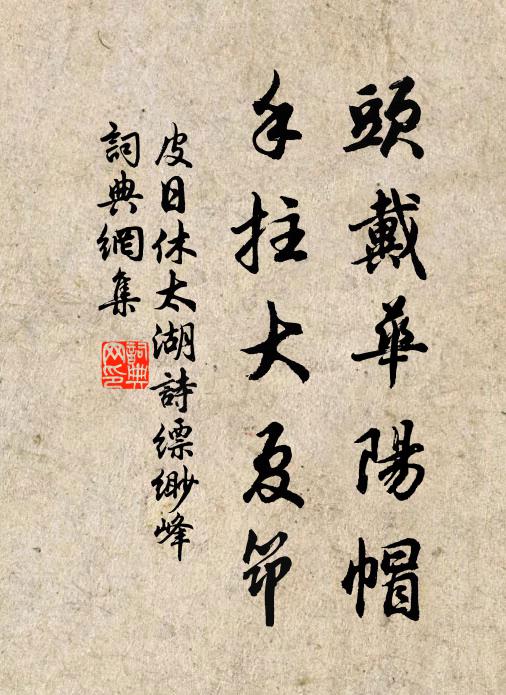 頭戴華陽帽
手拄大夏筇
皮日休太湖詩縹緲峰
詞典網集
詞典网印